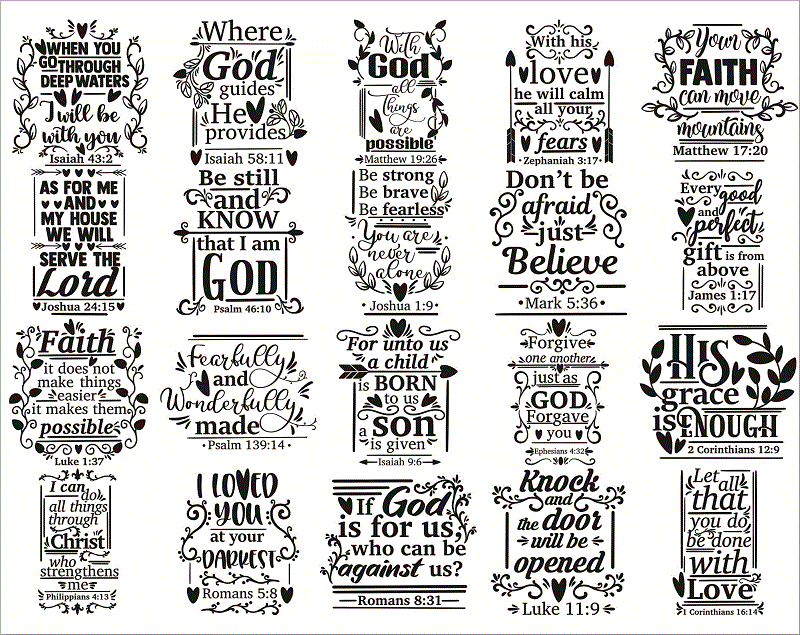 WHEN YOU
GO THROUGH
DEEP WATERS
I will be
with you
Isaiah 43:2
Where
God
guides
He
provides
Isaiah 58:11
With
God
all
Things
are
possible
Matthew 19:26
With his
love
he will calm
all your
fears
Zephaniah 3:17
Your
FAITH
can move
mountains
Matthew 17:20
AS FOR ME
AND
MY HOUSE
WE WILL
SERVE THE
Lord
Joshua 24:15
Be still
and
KNOW
that I am
GOD
Psalm 46:10
Be strong
Be brave
Be fearless
You are
never
alone
Joshua 1:9
Don't be
afraid
just
Believe
Mark 5:36
Every good
and
perfect
gift is from
above
James 1:17
Faith
it does not
make things
easier
it makes them
possible
Luke 1:37
Fearfully
and
Wonderfully
made
Psalm 139:14
For unto us
a child
is BORN
to us
a son
is given
Isaiah 9:6
Forgive
one another
just as
GOD
Forgave
you
Ephesians 4:32
HIS
grace
is ENOUGH
2 Corinthians 12:9
I can
do
all things
through
Christ
who
strengthens
me
Philippians 4:13
I LOVED
YOU
at your
DARKEST
Romans 5:8
If God
is for us,
who can be
against us?
Romans 8:31
Knock
and
the door
will be
opened
Luke 11:9
Let all
that
you do
be done
with
Love
1 Corinthians 16:14